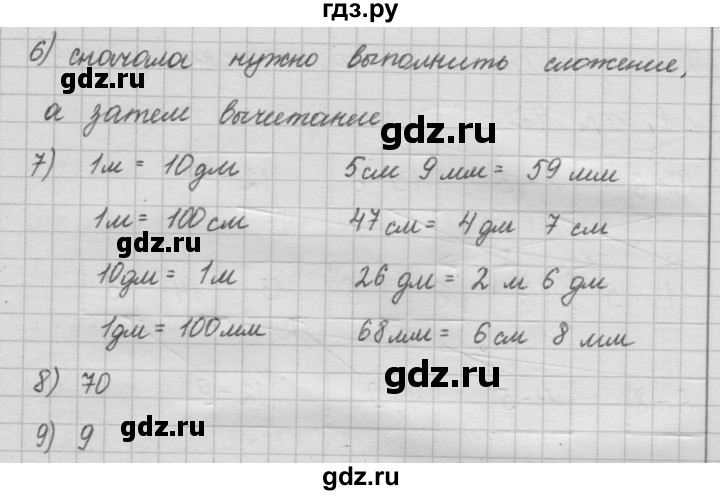 гдз.ру
6) сначала нужно выполнить сложение,
gdz.ru
а затем вычитание
gdz.ru
7) 1м = 10дм 5см 9мм = 59мм
1м = 100см 47см = 4дм 7см
gdz.ru
10дм = 1м 26дм = 2м 6дм
1дм = 100мм 68мм = 6см 8мм
gdz.ru
8) 70
gdz.ru
9) 9
gdz.ru